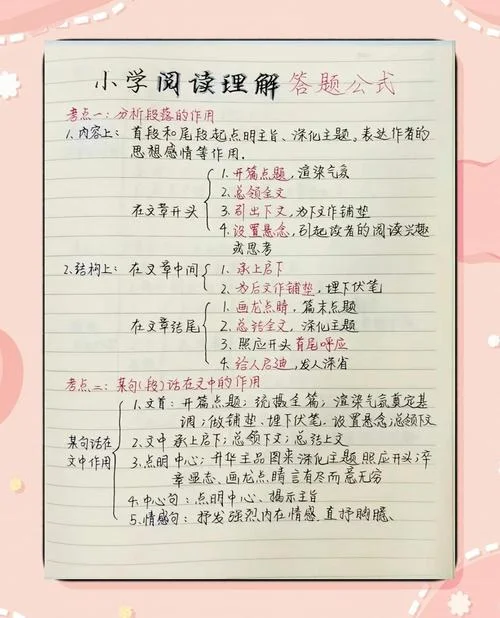 小学阅读理解答题公式
考点一：分析段落的作用
1.内容上：首段和尾段起点明主旨、深化主题。表达作者的
思想感情等作用.
在文章开头
1.开篇点题，渲染气氛
2.总领全文
3.引出下文，为下文作铺垫
4.设置悬念，引起读者的阅读兴趣
或思考
2.结构上：在文章中间
1.承上启下
2.为后文作铺垫，埋下伏笔
在文章结尾
1.画龙点睛，篇末点题
2.总结全文，深化主题
3.照应开头首尾呼应
4.给人启迪，发人深省
考点二：某句(段)话在文中的作用
某句话在
文中作用
1.文首：开篇点题；统摄全篇；渲染气氛奠定基
调；做铺垫、埋下伏笔、设置悬念；总领下文
2.文中 承上启下；总领下文；总结上文
3.点明中心；升华主品图来深化主题 照应开头；卒
章显志、画龙点睛言有尽而意无穷
4.中心句：点明中心、揭示主旨
5.情感句：抒发强烈内在情感、直抒胸臆、